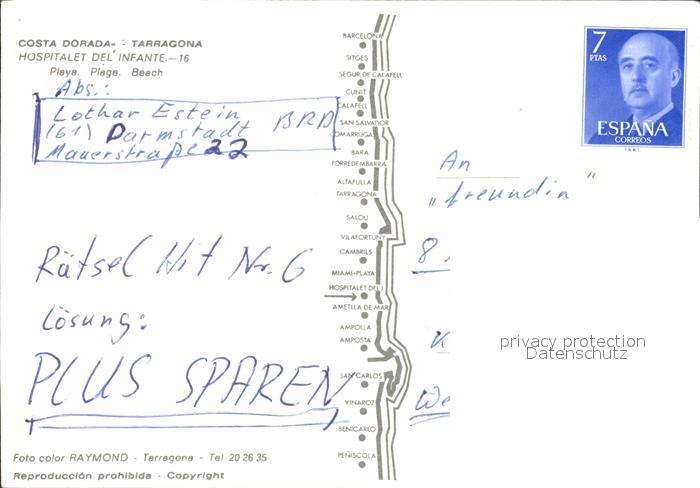 COSTA DORADA - TARRAGONA
HOSPITALET DEL INFANTE.-16
Playa. Plage. Beach
Abs.:
Lothar Estein
(61) Darmstadt BRD
Mauerstraße 22
Rätsel Hit Nr. 6
Lösung:
PLUS SPAREN
Foto color RAYMOND - Tarragona - Tel 20 26 35
Reproducción prohibida - Copyright
BARCELONA
SITGES
SEGUR DE CALAFELL
CUNIT
CALAFELL
SAN SALVADOR
COMARRUGA
BARA
TORREDEMBARRA
ALTAFULLA
TARRAGONA
SALOU
VILAFORTUNY
CAMBRILS
MIAMI-PLAYA
HOSPITALET DEL I.
AMETLLA DE MAR
AMPOLLA
AMPOSTA
SAN CARLOS
VINAROZ
BENICARLO
PEÑISCOLA
7
PTAS
ESPAÑA
CORREOS
An
„freundin"
8
K
We
privacy protection
Datenschutz